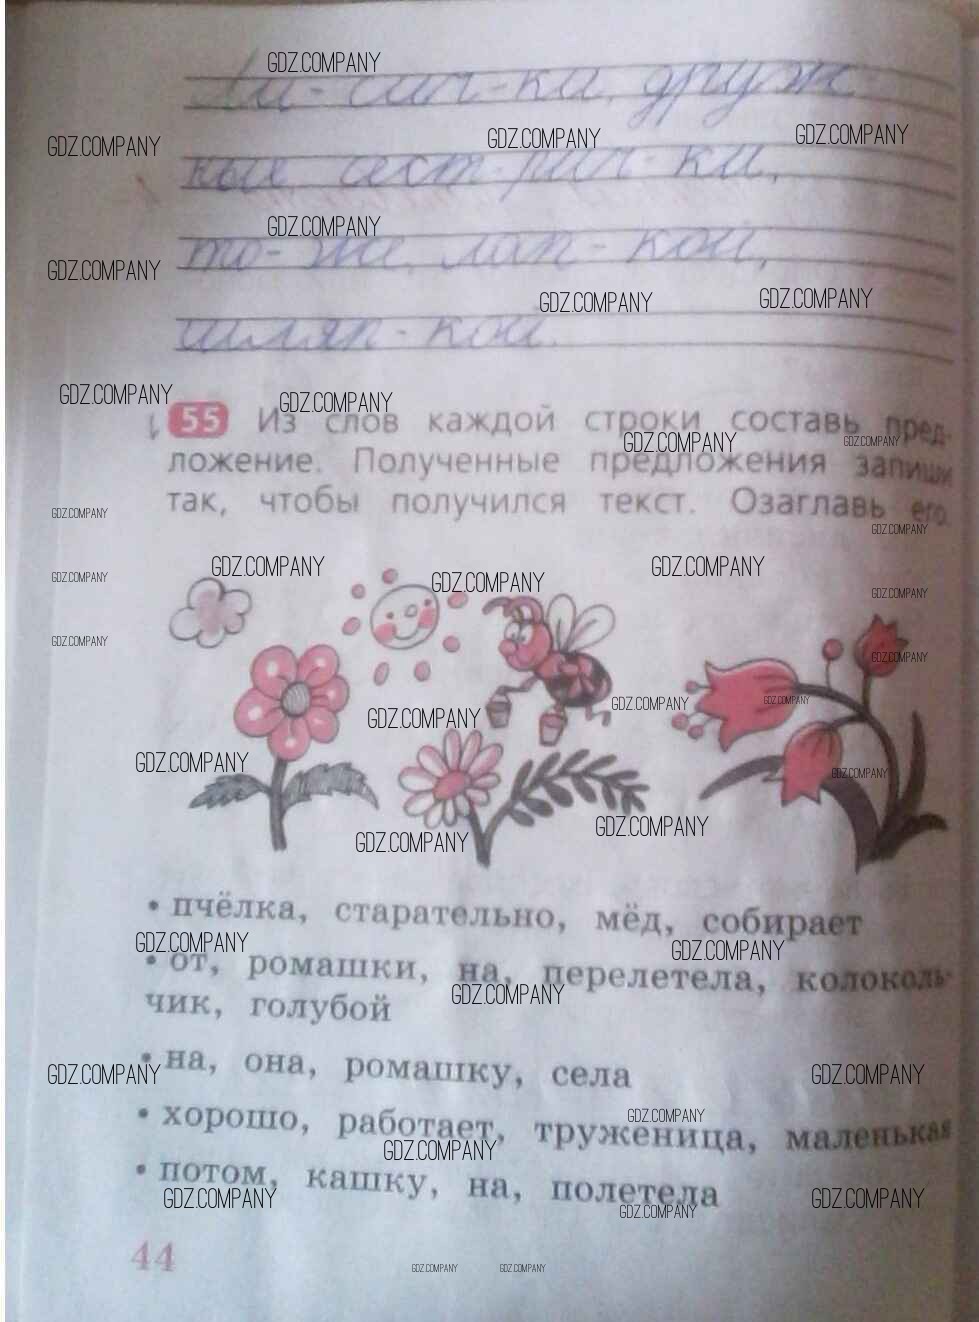 GDZ.COMPANY
ли-сич-ка, друж
GDZ.COMPANY GDZ.COMPANY GDZ.COMPANY
ные сест-рич-ки,
GDZ.COMPANY
то-же, лап-кой,
GDZ.COMPANY
GDZ.COMPANY GDZ.COMPANY
шляп-кой.
GDZ.COMPANY GDZ.COMPANY
55 Из слов каждой строки составь пред-
GDZ.COMPANY GDZ.COMPANY
ложение. Полученные предложения запиши
так, чтобы получился текст. Озаглавь его.
GDZ.COMPANY GDZ.COMPANY
GDZ.COMPANY GDZ.COMPANY GDZ.COMPANY GDZ.COMPANY
GDZ.COMPANY
GDZ.COMPANY GDZ.COMPANY
GDZ.COMPANY GDZ.COMPANY
GDZ.COMPANY
GDZ.COMPANY GDZ.COMPANY
GDZ.COMPANY GDZ.COMPANY
• пчёлка, старательно, мёд, собирает
GDZ.COMPANY GDZ.COMPANY
• от, ромашки, на, перелетела, колоколь-
GDZ.COMPANY
чик, голубой
• на, она, ромашку, села
GDZ.COMPANY GDZ.COMPANY
• хорошо, работает, труженица, маленькая
GDZ.COMPANY
GDZ.COMPANY
• потом, кашку, на, полетела
GDZ.COMPANY GDZ.COMPANY GDZ.COMPANY
44
GDZ.COMPANY GDZ.COMPANY